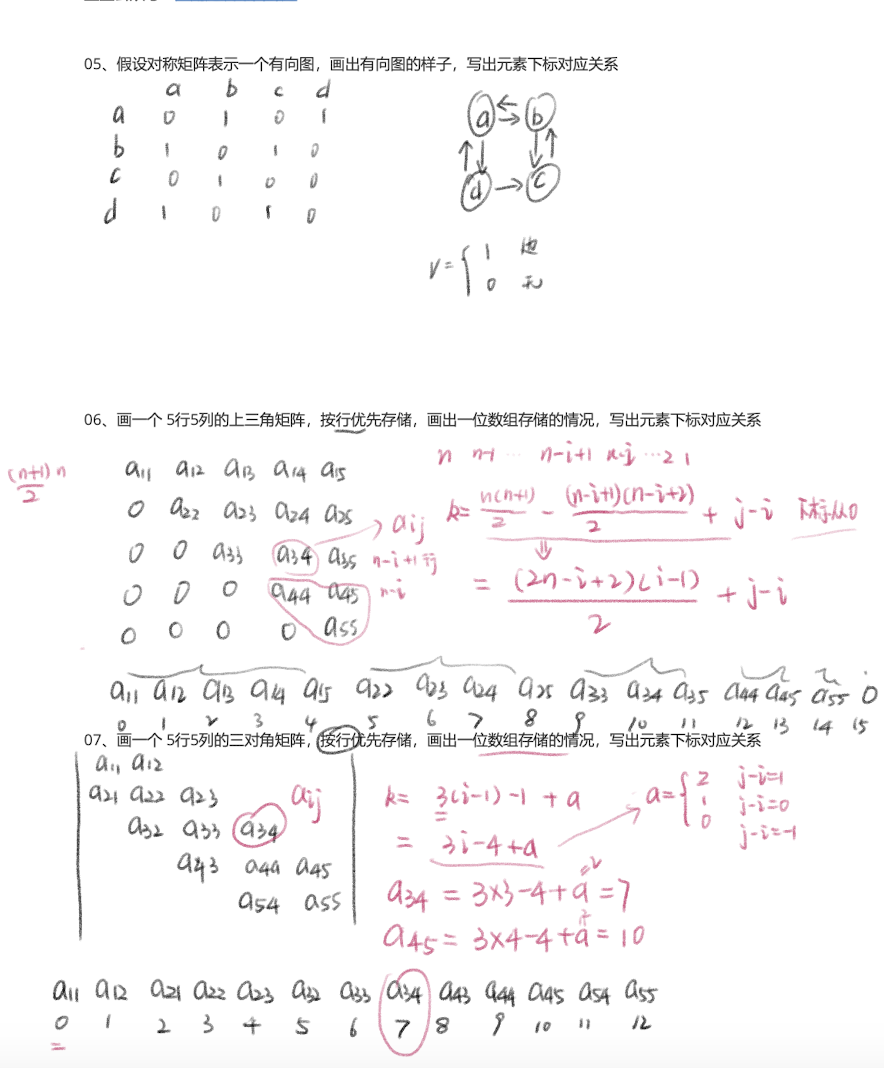 05、假设对称矩阵表示一个有向图，画出有向图的样子，写出元素下标对应关系
a b c d
a 0 1 0 1
b 1 0 1 0
c 0 1 0 0
d 1 0 1 0
a b
d c
V = { 1 边
0 无
06、画一个 5行5列的上三角矩阵，按行优先存储，画出一位数组存储的情况，写出元素下标对应关系
(n+1)n / 2
a11 a12 a13 a14 a15
0 a22 a23 a24 a25
0 0 a33 a34 a35
0 0 0 a44 a45
0 0 0 0 a55
aij
n-i+1行
n-i
n n-1 … n-i+1 n-i … 2 1
k= n(n+1)/2 - (n-i+1)(n-i+2)/2 + j-i 下标从0
= (2n-i+2)(i-1)/2 + j-i
a11 a12 a13 a14 a15 a22 a23 a24 a25 a33 a34 a35 a44 a45 a55 0
0 1 2 3 4 5 6 7 8 9 10 11 12 13 14 15
07、画一个 5行5列的三对角矩阵，按行优先存储，画出一位数组存储的情况，写出元素下标对应关系
a11 a12
a21 a22 a23
a32 a33 a34
a43 a44 a45
a54 a55
aij
k= 3(i-1)-1+a
= 3i-4+a
a={ 2 j-i=1
1 j-i=0
0 j-i=-1
a34 = 3×3-4+a=7
=2
a45= 3×4-4+a=10
a11 a12 a21 a22 a23 a32 a33 a34 a43 a44 a45 a54 a55
0 1 2 3 4 5 6 7 8 9 10 11 12